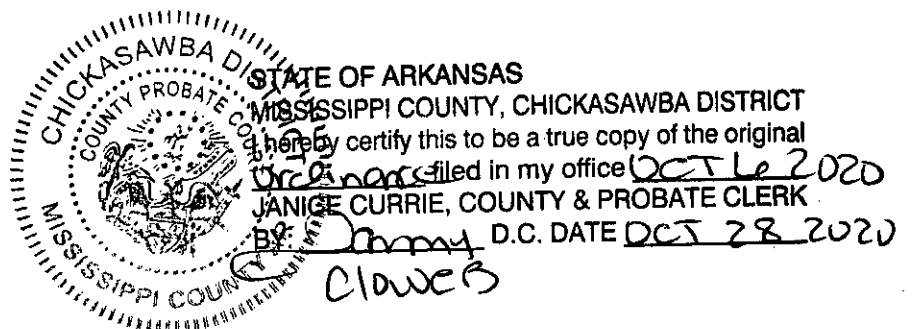 CHICKASAWBA DISTRICT
COUNTY PROBATE COURT
MISSISSIPPI COUNTY
STATE OF ARKANSAS
MISSISSIPPI COUNTY, CHICKASAWBA DISTRICT
I hereby certify this to be a true copy of the original
Ordinance filed in my office OCT 6 2020
JANICE CURRIE, COUNTY & PROBATE CLERK
BY: D.C. DATE OCT 28 2020